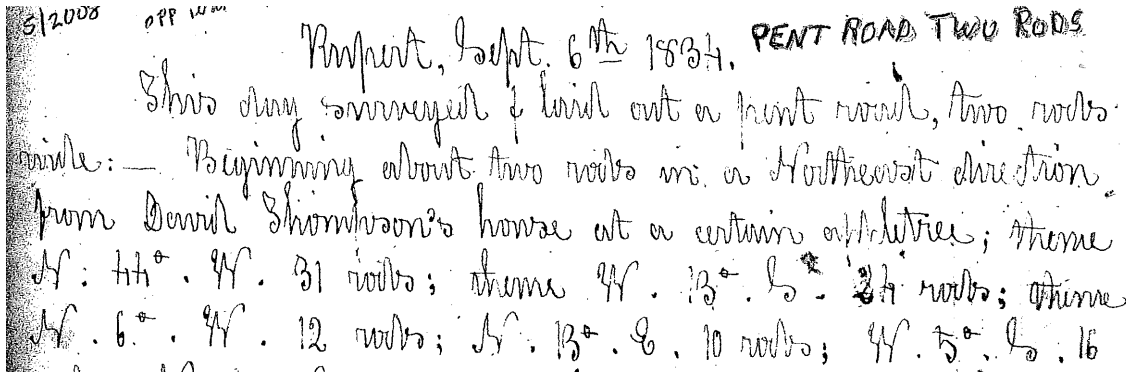 5/2008 OPP
Rupert, Sept. 6th 1834. PENT ROAD TWO RODS
This day surveyed & laid out a pent road, two rods
wide:— Beginning about two rods in a Northeast direction
from David Thompson's house at a certain appletree; thence
N. 44°. W. 31 rods; thence W. 13°. S. 24 rods; thence
N. 6°. W. 12 rods; N. 13°. E. 10 rods; W. 5°. S. 16